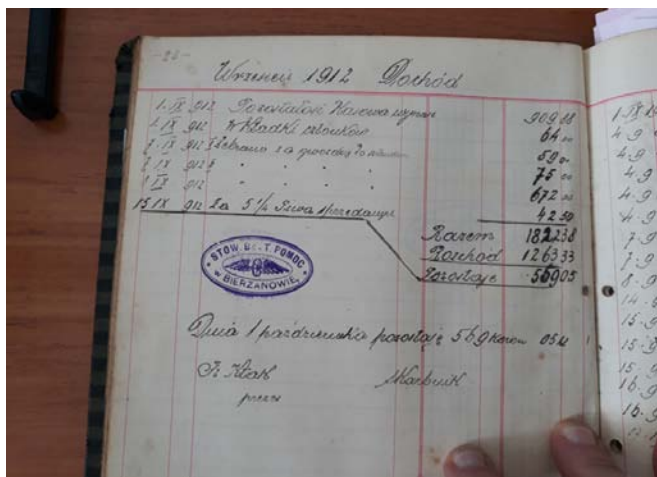 -24-
Wrzesień 1912 Dochód
1. IX 912 Pozostałość Kasowa wynosi 909 88
1. IX 912 Wkładki członków 64 00
1. IX 912 Zebrano za 59
1 IX 912 " " " " 75 00
1 IX 912 " " " " 672 00
15 IX 912 Za 5 1/2 Piwa sprzedanego 42 50
Razem 1822 38
Rozchód 1263 33
Pozostaje 569 05
STOW. POMOC
W BIERZANOWIE
Dnia 1 października pozostaje 569 Koron 05 h
Fr Kłak Skarbnik
prezes
1 IX 19
4.9
4.9
4.9
4.9
7.9
7.9
8.9
14.9
15.9
15.9
15.9
16.9
16.9